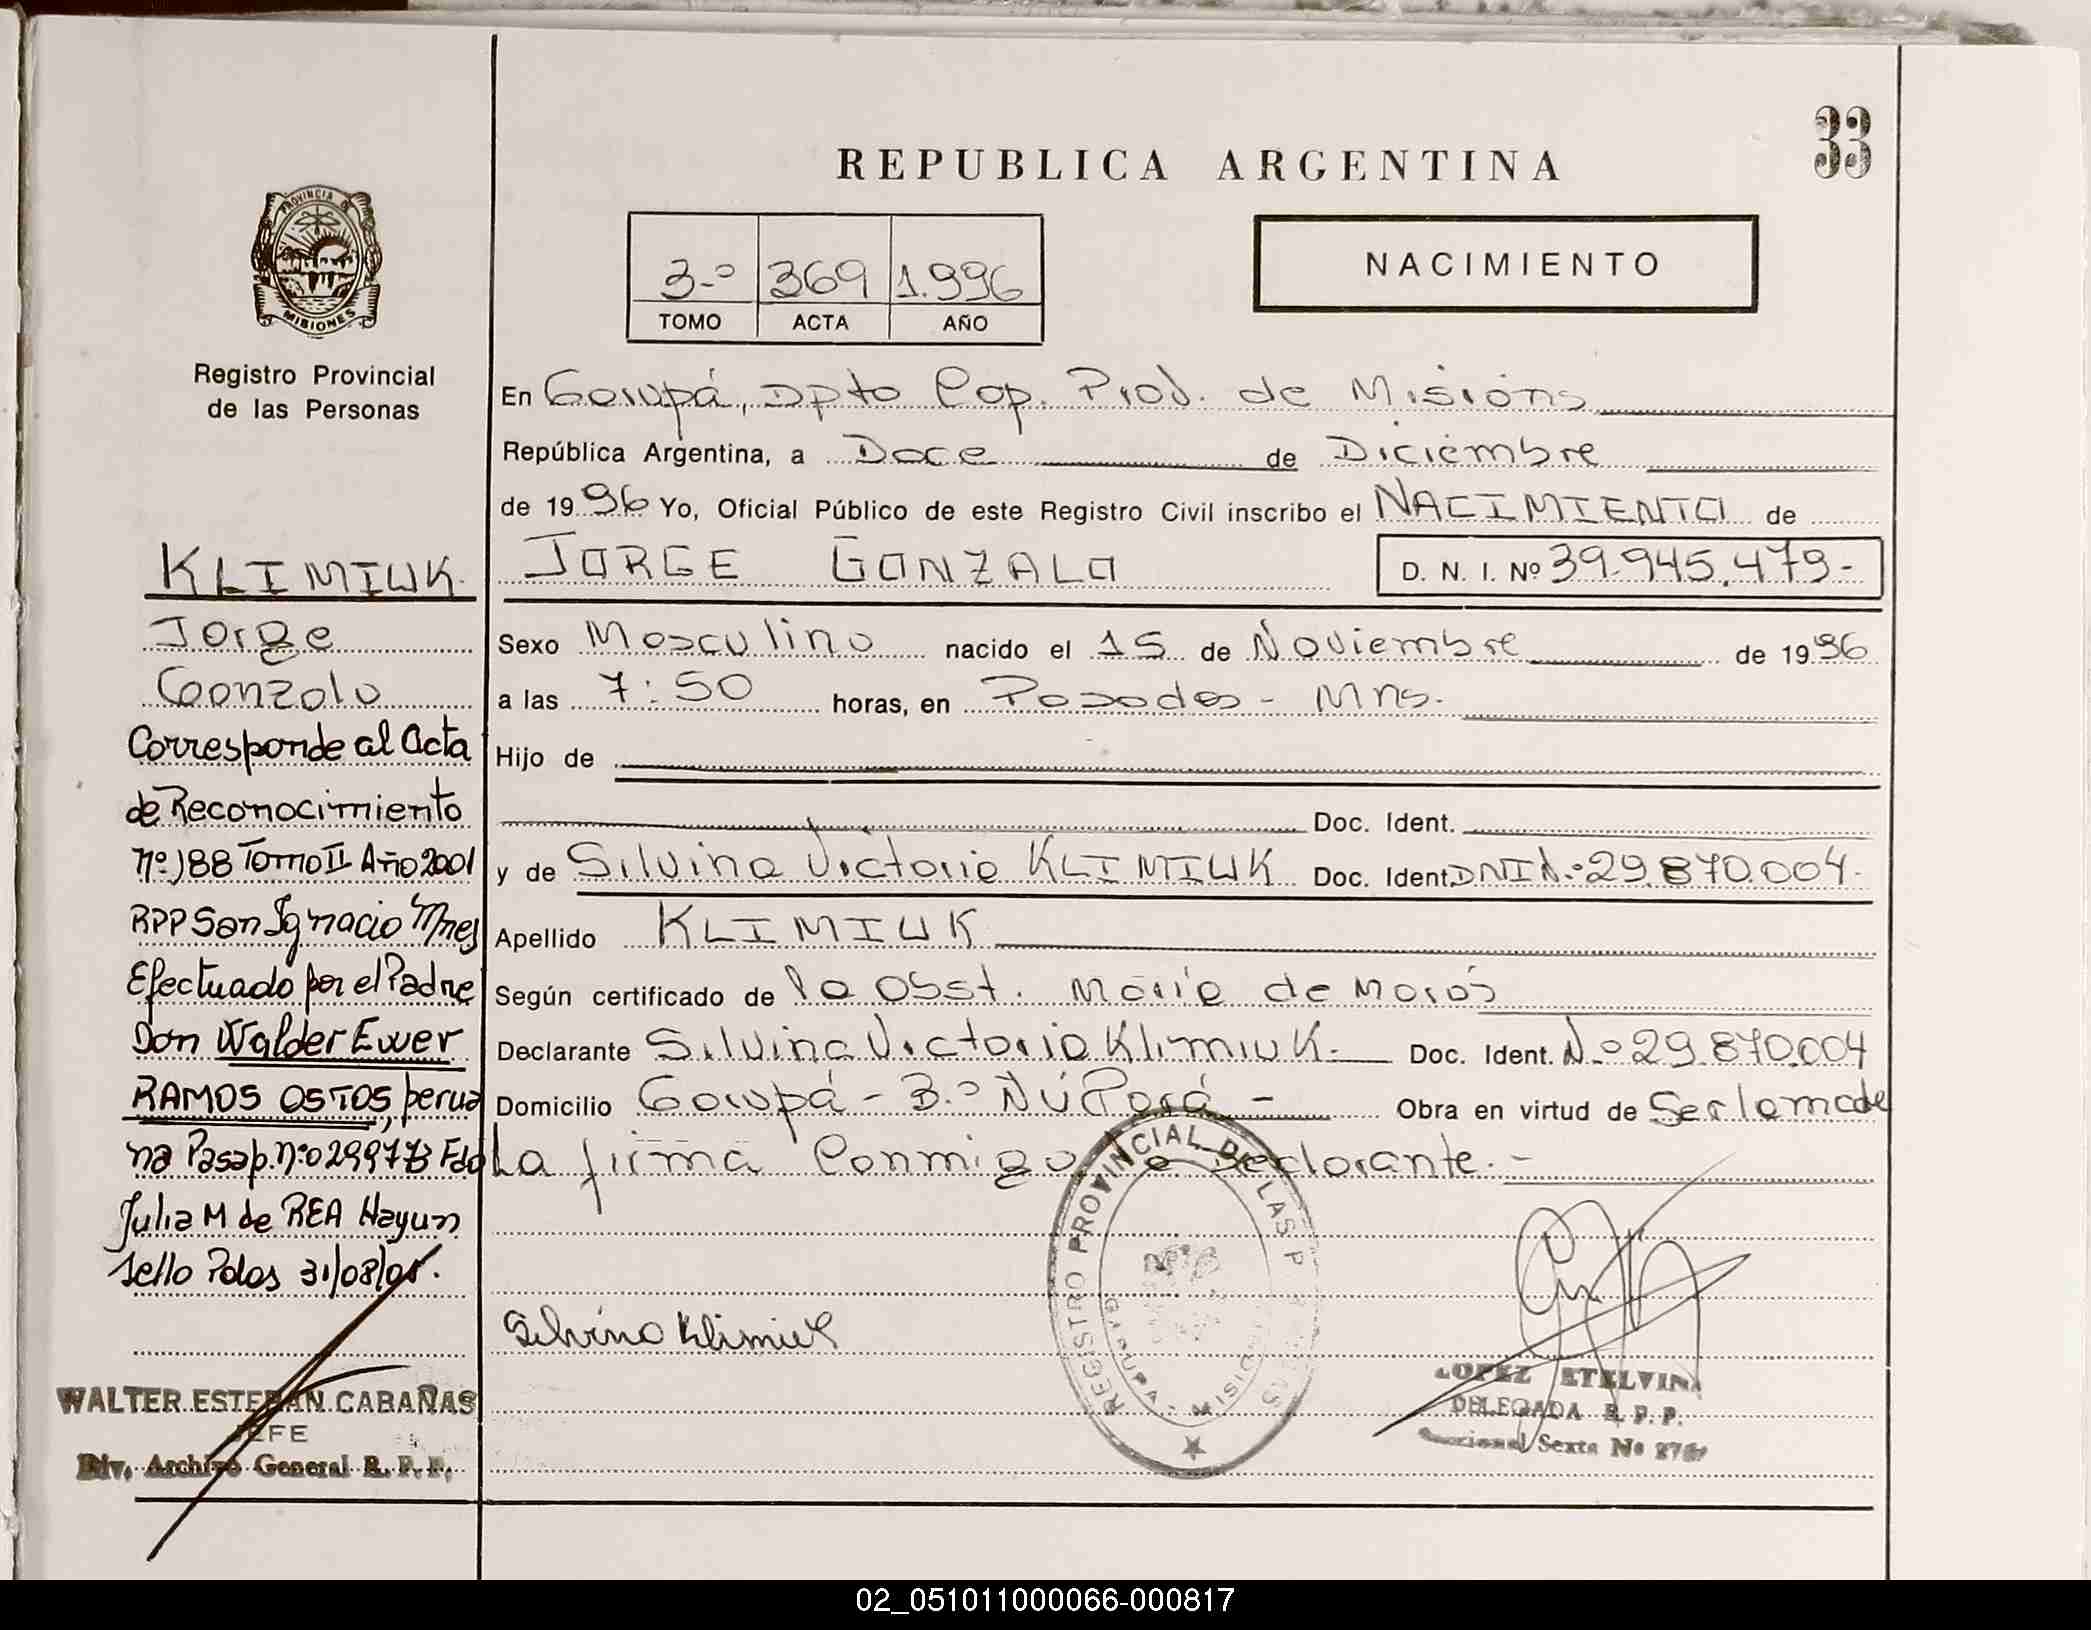 33
REPUBLICA ARGENTINA
PROVINCIA DE
MISIONES
Registro Provincial
de las Personas
3.º 369 1.996
TOMO ACTA AÑO
NACIMIENTO
En Garupá, Dpto Cap. Prov. de Misions
República Argentina, a Doce de Diciembre
de 1996 Yo, Oficial Público de este Registro Civil inscribo el NACIMIENTO de
JORGE GONZALO D. N. I. Nº 39.945.479-
Sexo Masculino nacido el 15 de Noviembre de 1996
a las 7:50 horas, en Posadas - Mns.
Hijo de
Doc. Ident.
y de Silvina Victoria KLIMIUK Doc. Ident DNI N.º 29.870.004.
Apellido KLIMIUK
Según certificado de la Obst. María de Morás
Declarante Silvina Victoria Klimiuk. Doc. Ident. N.º 29.870.004
Domicilio Garupá - B.º Ñú Porá - Obra en virtud de Ser la madre
La firma Conmigo la Declarante. -
Silvina Klimiuk
REGISTRO PROVINCIAL DE LAS P
GARUPA - MISI
LOPEZ ETELVINA
DELEGADA R. P. P.
Seccional Sexta Nº
KLIMIUK.
Jorge
Gonzalo
Corresponde al Acta
de Reconocimiento
nº 188 Tomo II Año 2001
RPP San Ignacio Mnes
Efectuado por el Padre
Don Walder Ewer
RAMOS OSTOS, perua
na Pasap. nº 0299773 Fdo
Julia M de REA Hayun
Sello Pdas 31/08/01.
WALTER ESTEBAN CABAÑAS
JEFE
Div. Archivo General R. P. P.
02_051011000066-000817